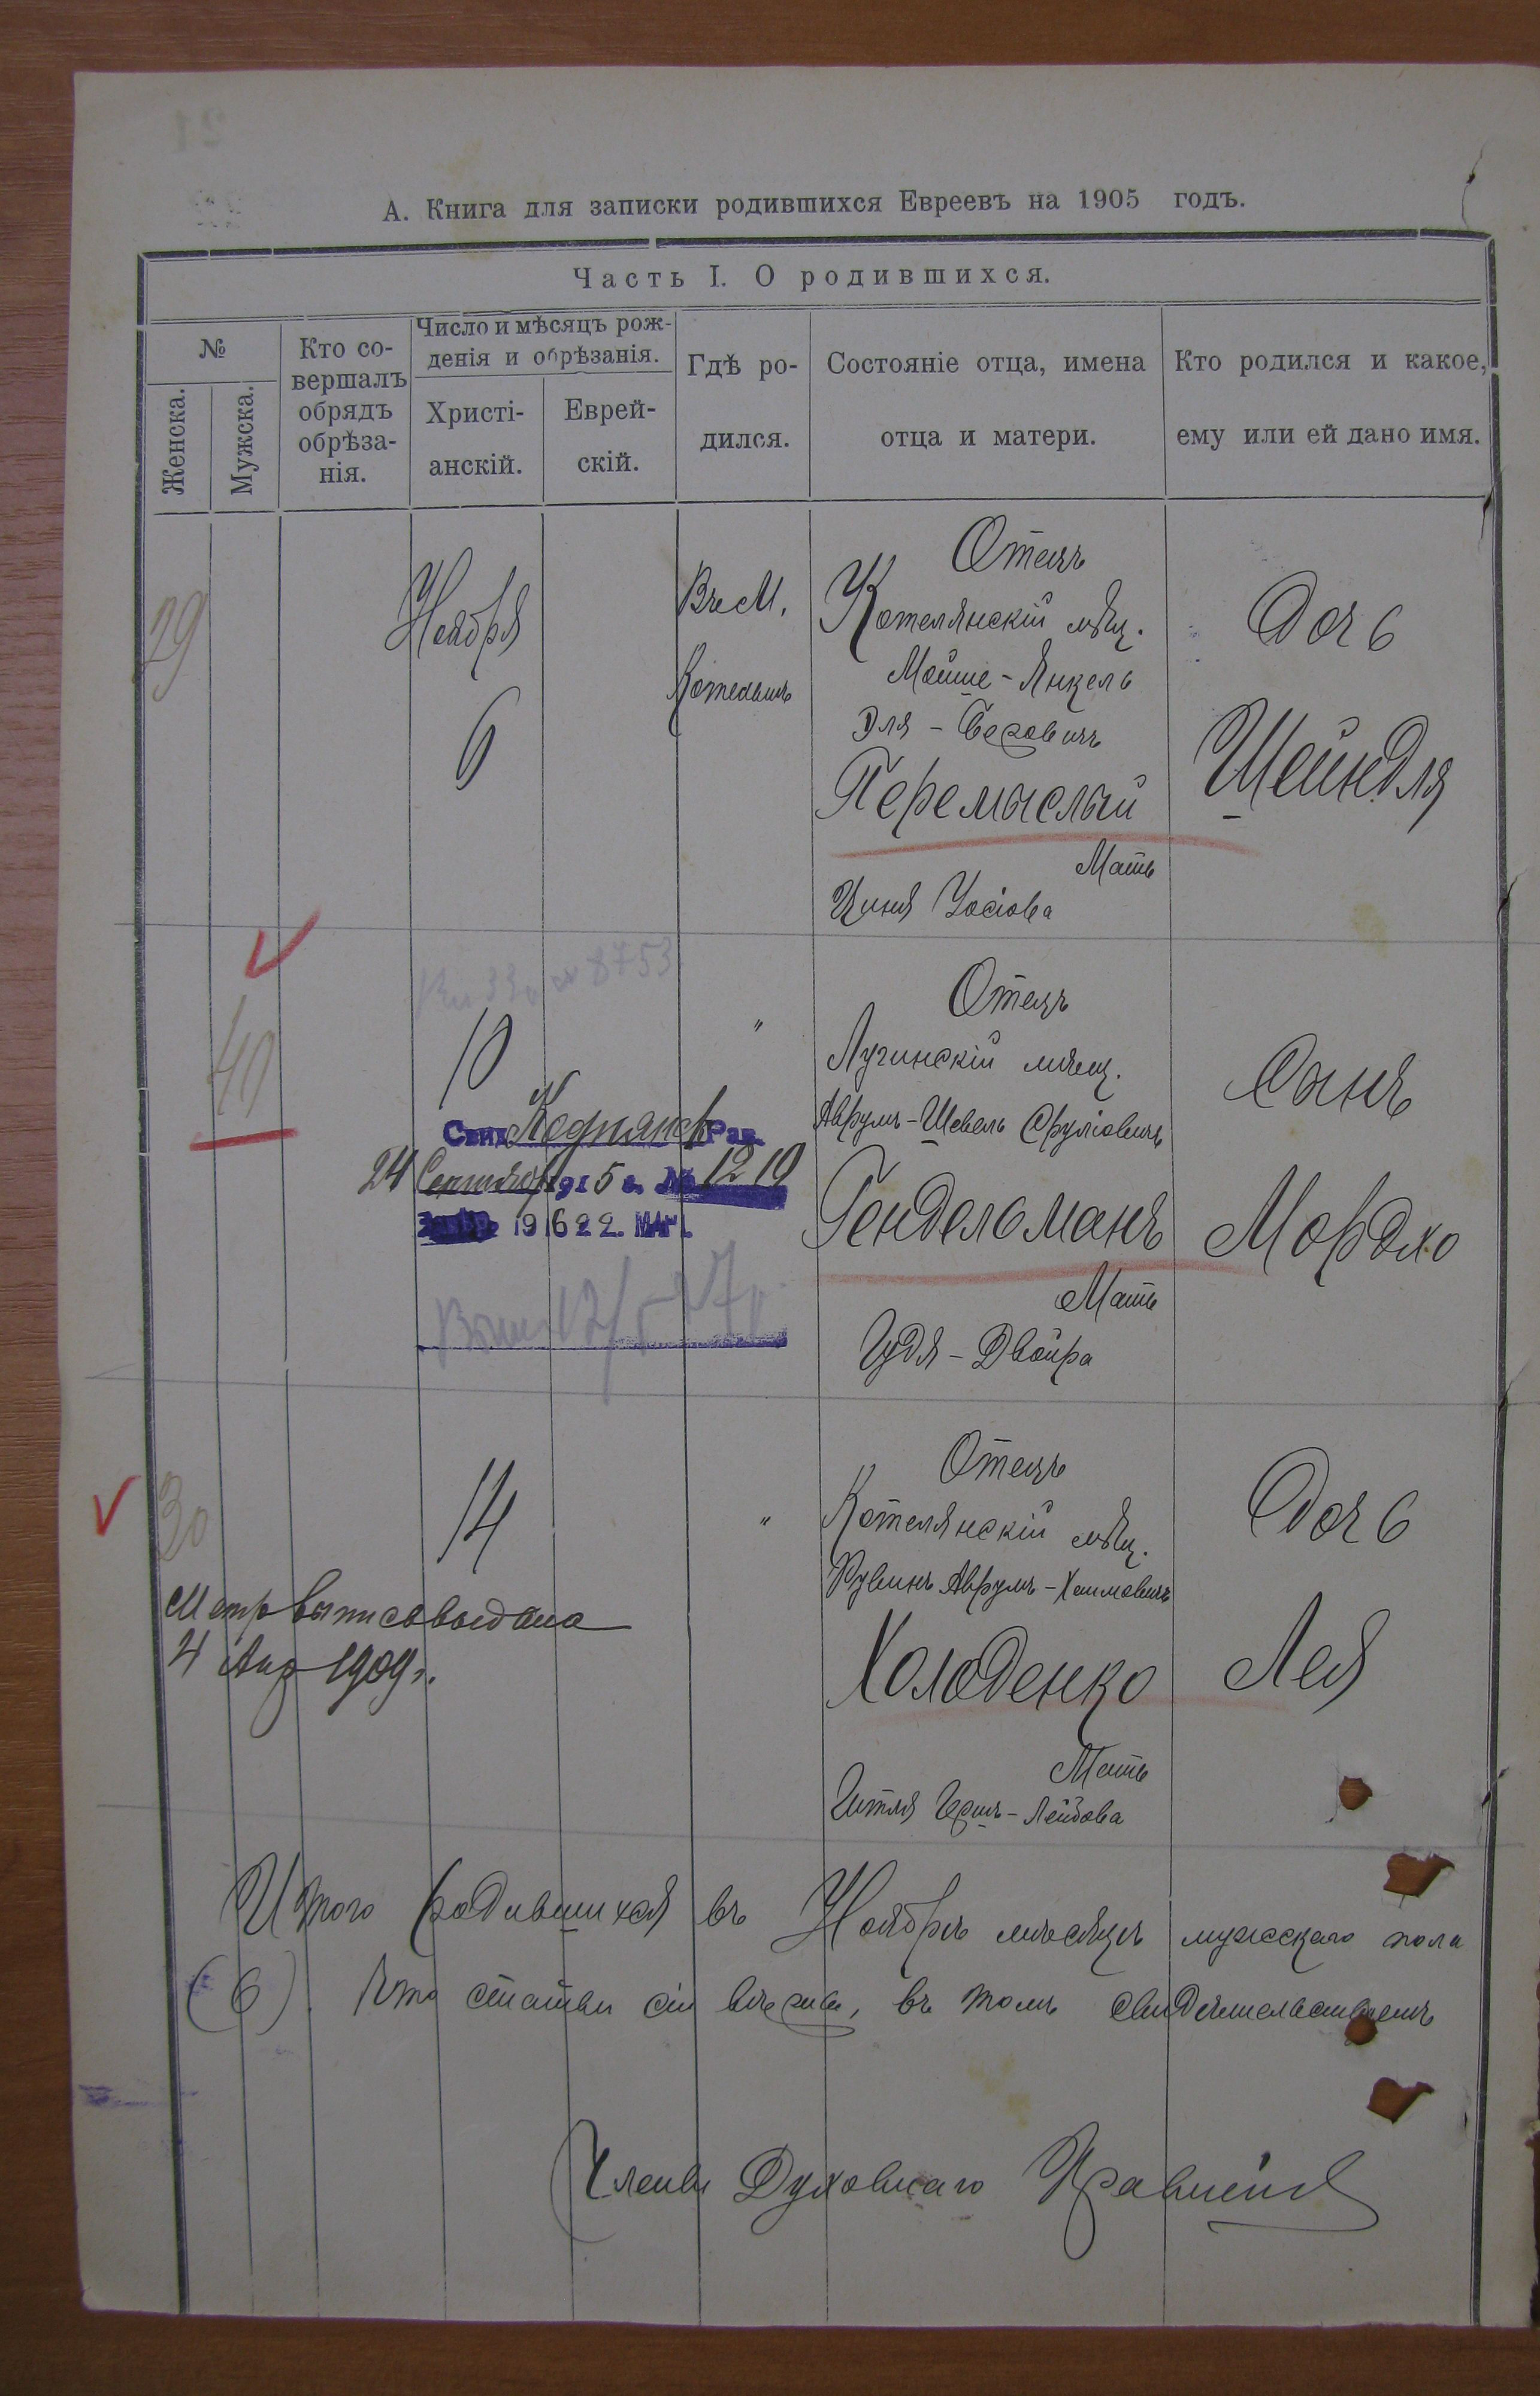 А. Книга для записки родившихся Евреевъ на 1905 годъ.
Часть I. О родившихся.
№
Женска.
Мужска.
Кто со-
вершалъ
обрядъ
обрѣза-
нія.
Число и мѣсяцъ рож-
денія и обрѣзанія.
Христі-
анскій.
Еврей-
скій.
Гдѣ ро-
дился.
Состояніе отца, имена
отца и матери.
Кто родился и какое,
ему или ей дано имя.
29
Ноября
6
Въ М.
Котельнѣ
Отецъ
Котелянскій мѣщ.
Мойше-Янкель
Эля-Берковичъ
Перемыслый
Мать
Циня Іосіова
Дочь
Шейндля
40
№ 8753
10
"
Отецъ
Лугинскій мѣщ.
Аврумъ-Шевель Сруліовичъ
Гендельманъ
Мать
Гудя-Двойра
Сынъ
Мордко
Свид. Коднянск Рав.
24 Сентября 1915 г. № 1219
1922. МАГ.
30
14
"
Отецъ
Котелянскій мѣщ.
Рувинъ Аврумъ-Хаимовичъ
Холоденко
Мать
Гитля Герш-Лейбова
Дочь
Лея
Метр выпись выдана
4 Апр 1909 г.
Итого родившихся въ Ноябрѣ мѣсяцѣ мужскаго пола
(6). Что статьи сіи вѣрны, въ томъ свидѣтельствуемъ
Члены Духовнаго Правленія